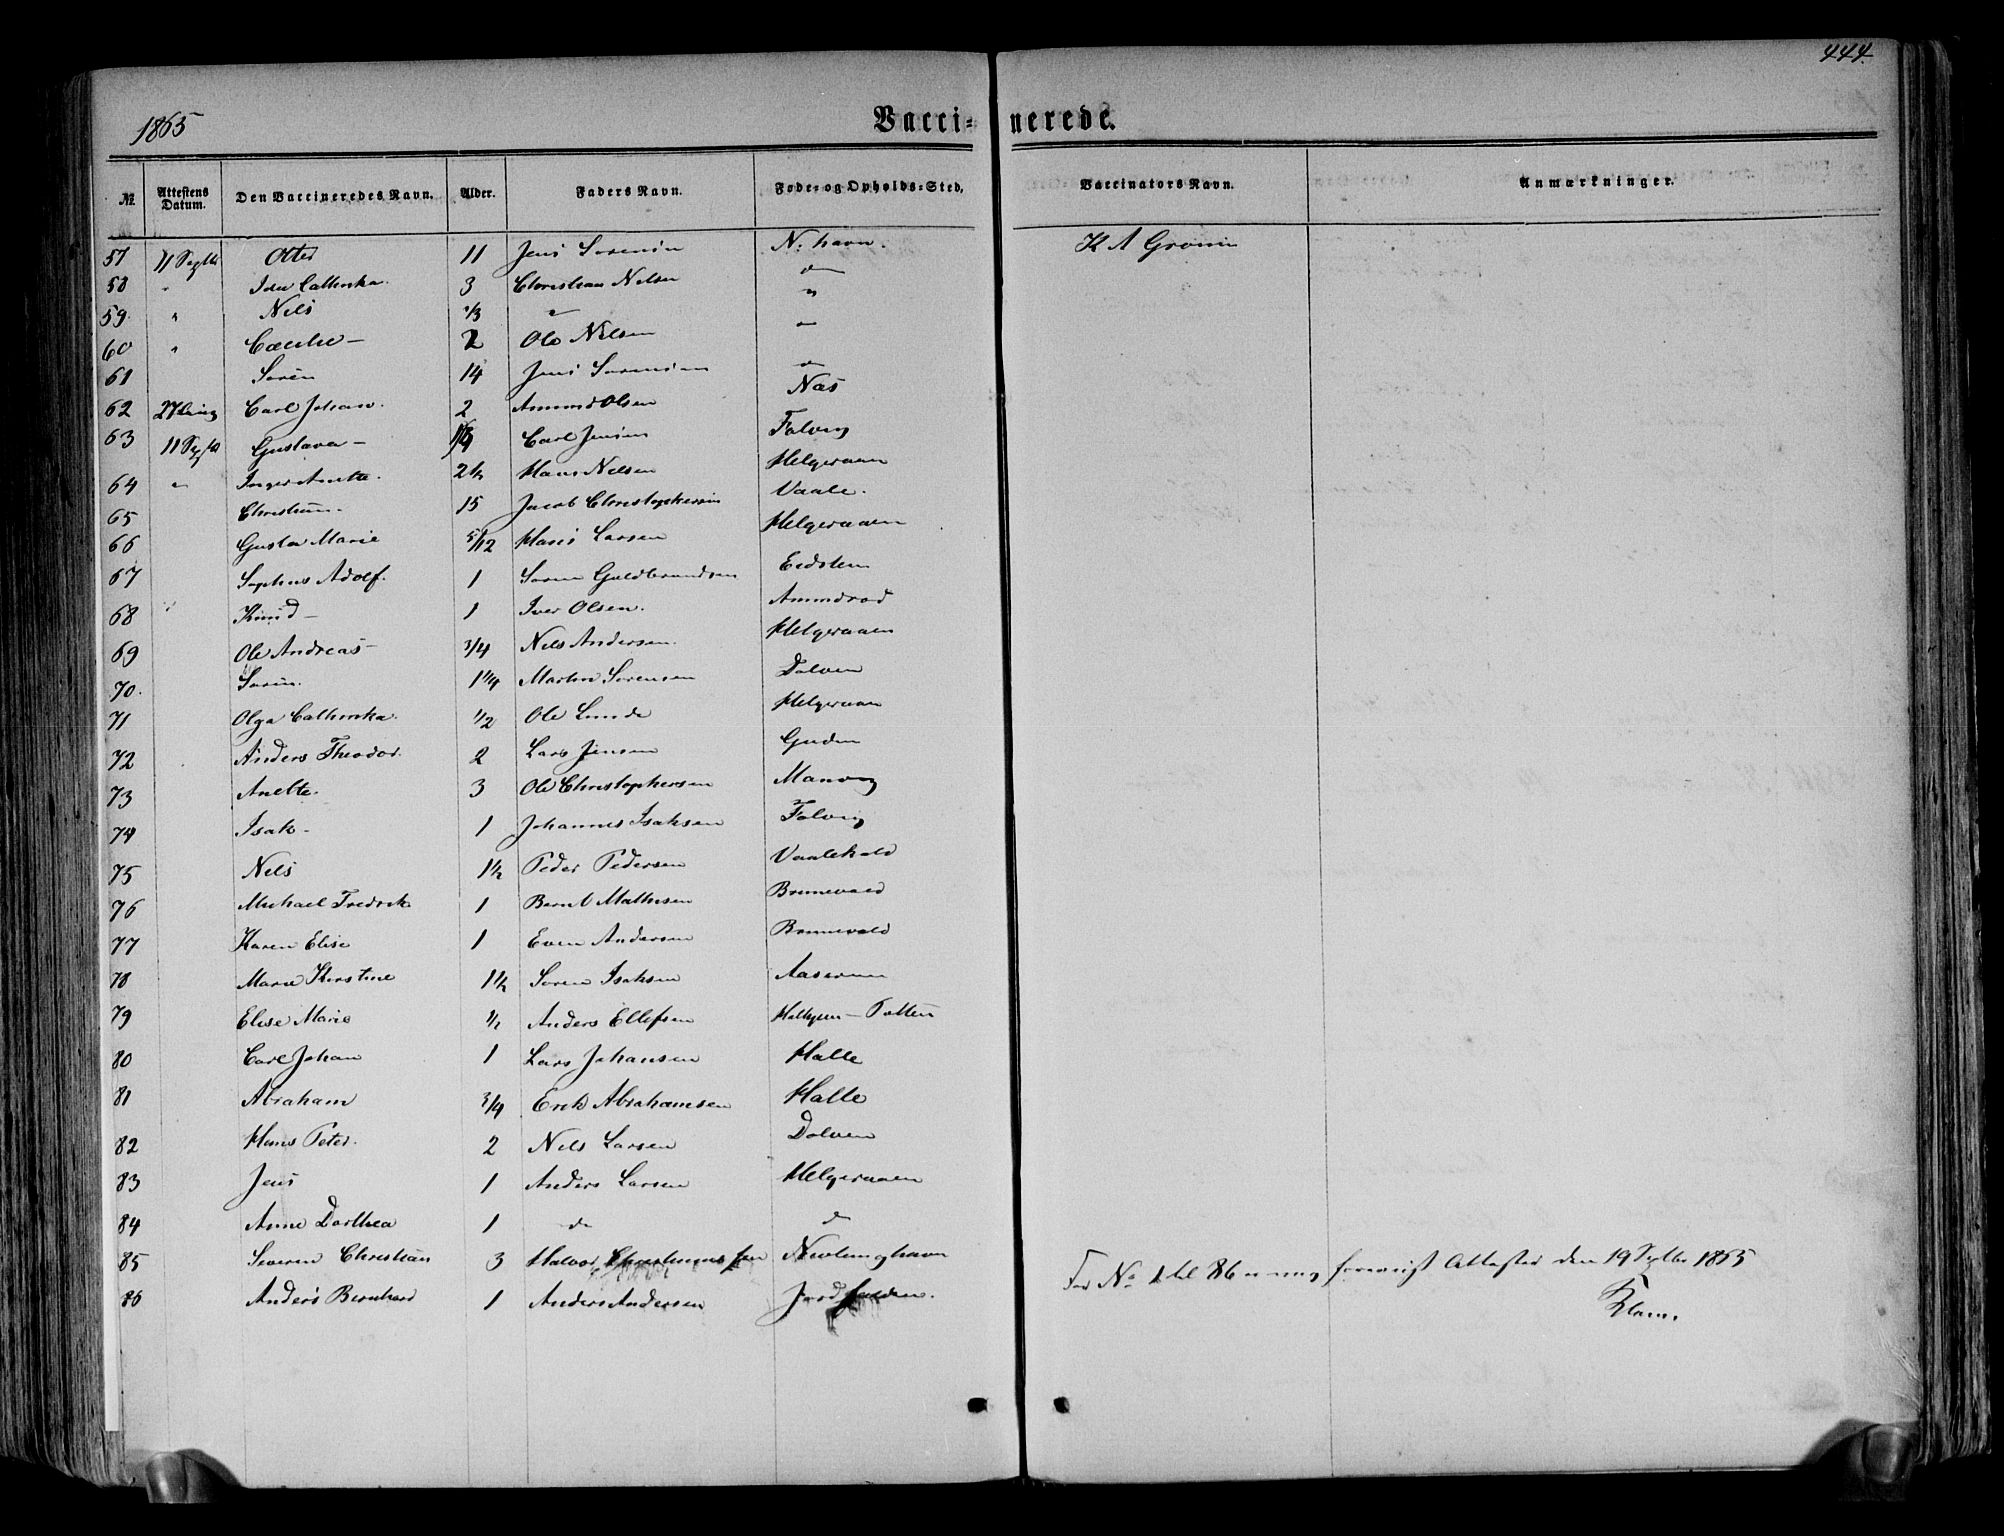 444.
1865
Vacci- nerede.
№ Attestens Datum. Den Vaccineredes Navn. Alder. Faders Navn. Føde- og Opholds-Sted. Vaccinators Navn. Anmærkninger.
57 11 Septbr Otter 11 Jens Sorensen N: havn. K A Gronn
58 " Ida Cathinka. 3 Christian Nilsen do
59. " Nils 1/3 " "
60 " Cæcilie - 2 Ole Nilsen "
61 Soren 14 Jens Sorensen do
62 Carl Johan. 2 Amund Olsen Næs
63 11 Sept Gustava - Carl Jensen Folvig
64 " Inger Anette. 2 1/2 Hans Nilsen Helgeraaen
65 Christian. 15 Jacob Christophersen Vaale.
66 Gusta Marie 5/12 Hans Larsen Helgeraaen
67 Sophus Adolf. 1 Soren Guldbrandsen Eidsten
68 Knud - 1 Iver Olsen. Amundrod
69 Ole Andreas - 3/4 Nils Andersen. Helgeraaen
70. Soren. 1 1/4 Martin Sorensen Dolven
71 Olga Cathinka. 1/2 Ole Lunde Helgeraaen
72 Anders Theodor. 2 Lars Jensen Guden
73 Anette. 3 Ole Christophersen Manvig
74 Isak - 1 Johannes Isaksen Folvig
75 Nils 1 1/2 Peder Pedersen
76 Michael Fredrik 1 Bernt Mathisen Brunevald
77 Karen Elise 1 Even Andersen Brunevald
78 Marie Kirstine 1 1/2 Soren Isaksen Aaserum
79 Elise Marie 1/2 Anders Ellefsen
80 Carl Johan 1 Lars Johansen Halle
81 Abraham 3/4 Erik Abrahamsen Halle
82 Hans Peter. 2 Nils Larsen Dolven
83 Jens 1 Anders Larsen Helgeraaen
84 Anne Dorthea 1 do do
85 Severin Christian 3 Halvor Christiansen Nevlunghavn
86 Anders Bernhard 1 Anders Andersen Jordfalden.
For No 1 til 86 er mig forevist Attester den 19 Septbr 1865